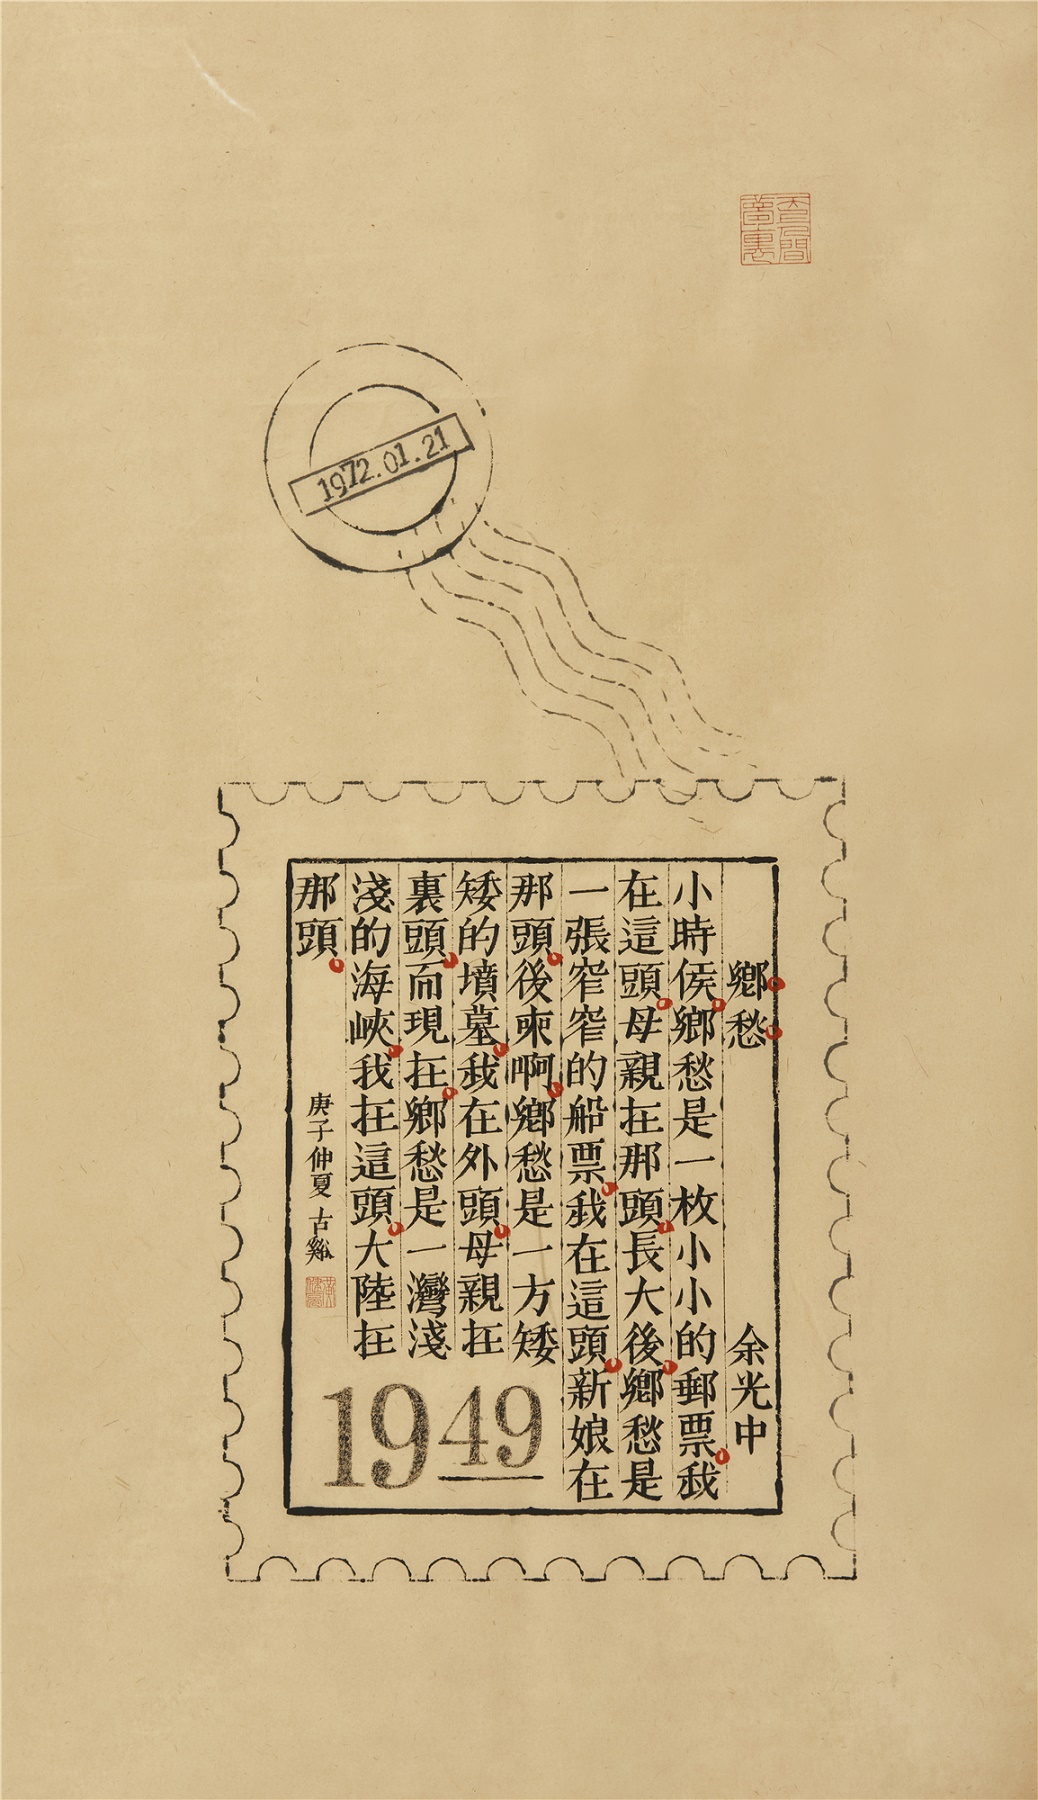 1972.01.21
鄉愁 余光中
小時侯鄉愁是一枚小小的郵票我
在這頭母親在那頭長大後鄉愁是
一張窄窄的船票我在這頭新娘在
那頭後來啊鄉愁是一方矮
矮的墳墓我在外頭母親在
裏頭而現在鄉愁是一灣淺
淺的海峽我在這頭大陸在
那頭
庚子仲夏 古谿
1949